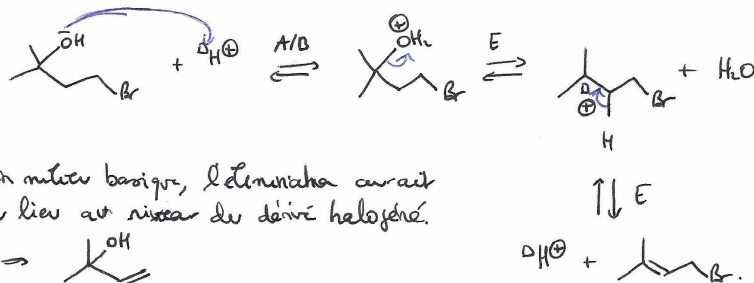 OH + H⊕ A/B ⊕ OH₂ E ⊕ + H₂O
Br Br H Br
En milieu basique, l'élimination aurait
eu lieu au niveau du dérivé halogéné. E
→ OH H⊕ + Br.